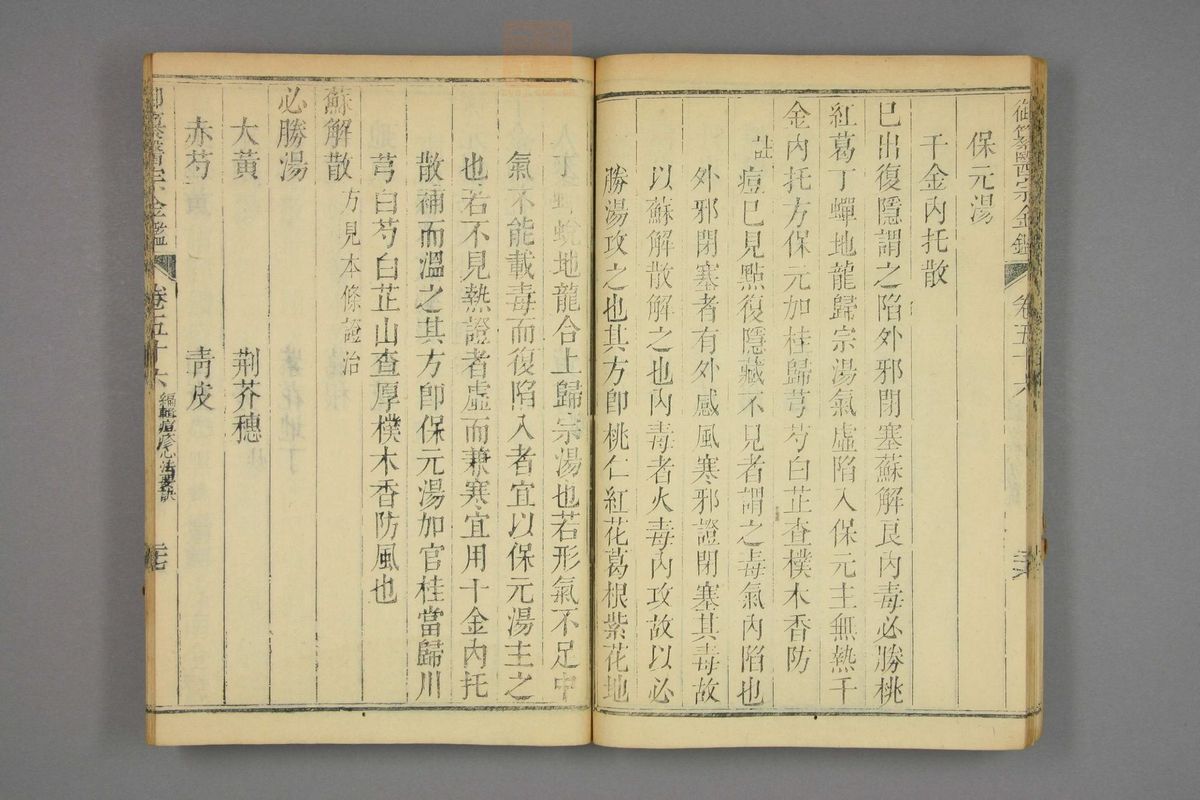 御纂醫宗金鑑 卷五十六
保元湯
千金內托散
已出復隱謂之陷外邪閉塞蘇解良內毒必勝桃
紅葛丁蟬地龍歸宗湯氣虛陷入保元主無熱千
金內托方保元加桂歸芎芍白芷查樸木香防
註痘已見點復隱藏不見者謂之毒氣內陷也
外邪閉塞者有外感風寒邪證閉塞其毒故
以蘇解散解之也內毒者火毒內攻故以必
勝湯攻之也其方卽桃仁紅花葛根紫花地
丁蟬蛻地龍合上歸宗湯也若形氣不足中
氣不能載毒而復陷入者宜以保元湯主之
也若不見熱證者虛而兼寒宜用千金內托
散補而溫之其方卽保元湯加官桂當歸川
芎白芍白芷山查厚樸木香防風也
蘇解散 方見本條證治
必勝湯
大黃 荆芥穗
赤芍 靑皮
御纂醫宗金鑑 卷五十六 編輯痘疹心法要訣 二七